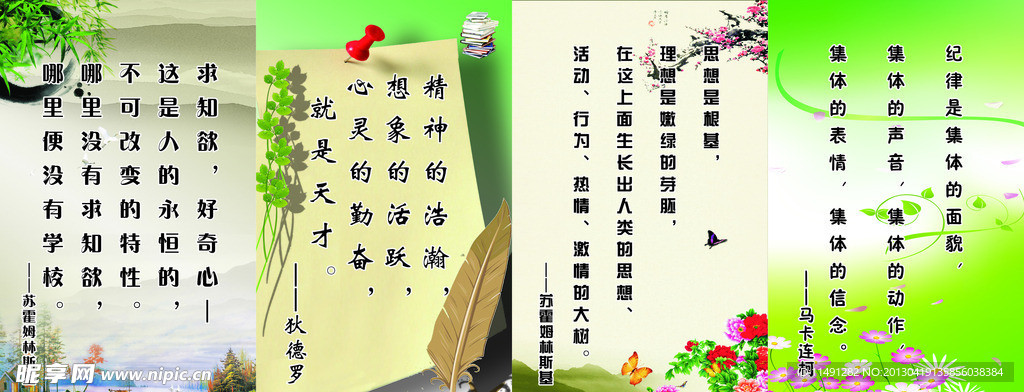 求知欲，好奇心—
这是人的永恒的，
不可改变的特性。
哪里没有求知欲，
哪里便没有学校。
——苏霍姆林斯
精神的浩瀚，
想象的活跃，
心灵的勤奋，
就是天才。
——狄德罗
思想是根基，
理想是嫩绿的芽胚，
在这上面生长出人类的思想、
活动、行为、热情、激情的大树。
——苏霍姆林斯基
纪律是集体的面貌，
集体的声音，集体的动作，
集体的表情，集体的信念。
——马卡连柯
昵享网 www.nipic.cn
1491282 NO:20130419135856038384